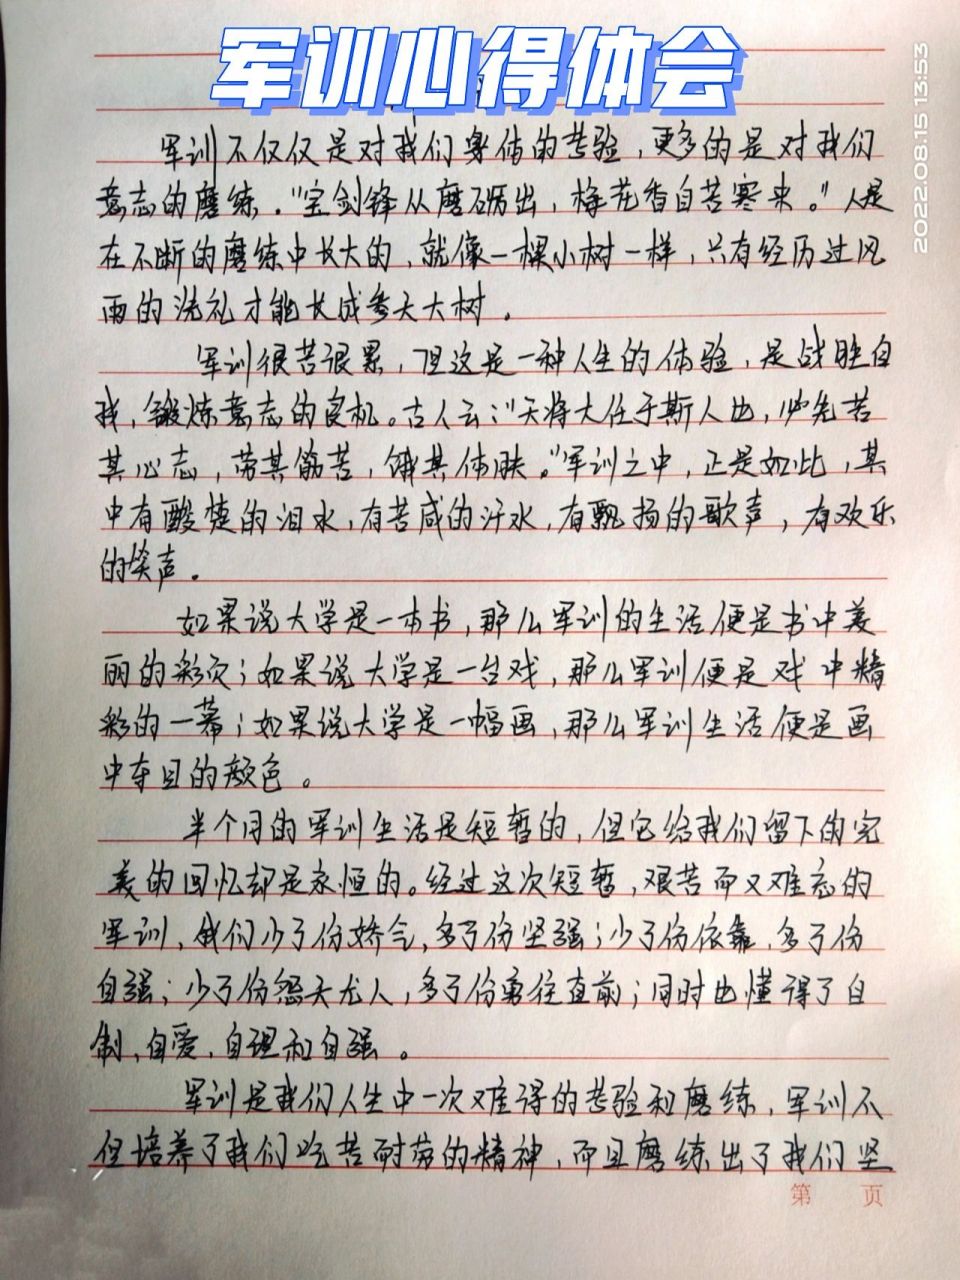 军训心得体会
2022.08.15 13:53
军训不仅仅是对我们身体的考验，更多的是对我们
意志的磨练。"宝剑锋从磨砺出，梅花香自苦寒来。"人是
在不断的磨练中长大的，就像一棵小树一样，只有经历过风
雨的洗礼才能长成参天大树。
军训很苦很累，但这是一种人生的体验，是战胜自
我，锻炼意志的良机。古人云："天将大任于斯人也，必先苦
其心志，劳其筋苦，饿其体肤。"军训之中，正是如此，其
中有酸楚的泪水，有苦咸的汗水，有飘扬的歌声，有欢乐
的笑声。
如果说大学是一本书，那么军训的生活便是书中美
丽的彩页；如果说大学是一台戏，那么军训便是戏中精
彩的一幕；如果说大学是一幅画，那么军训生活便是画
中夺目的颜色。
半个月的军训生活是短暂的，但它给我们留下的完
美的回忆却是永恒的。经过这次短暂，艰苦而又难忘的
军训，我们少了份娇气，多了份坚强；少了份依靠，多了份
自强；少了份怨天尤人，多了份勇往直前；同时也懂得了自
制，自爱，自理和自强。
军训是我们人生中一次难得的考验和磨练，军训不
但培养了我们吃苦耐劳的精神，而且磨练出了我们坚
第 页